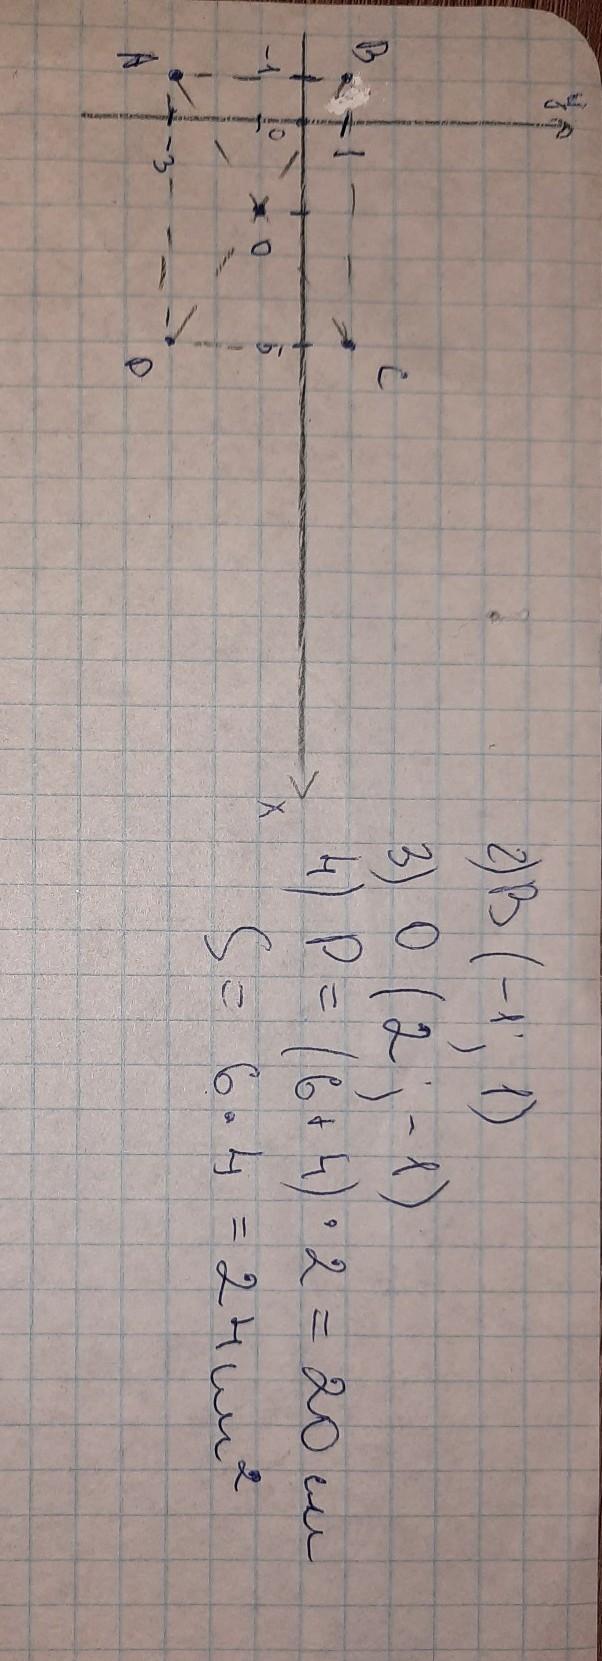 y
B
1
C
-1
0
5
x
O
A
-3
D
2) B (-1; 1)
3) O (2; -1)
4) P = (6+4)·2 = 20 см
S = 6·4 = 24 см²